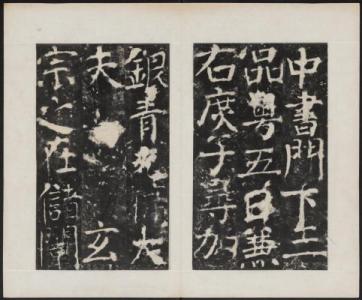 中書門下三
品粤五日兼
右庶子尋加
銀青光祿大
夫 玄
宗之在儲闈